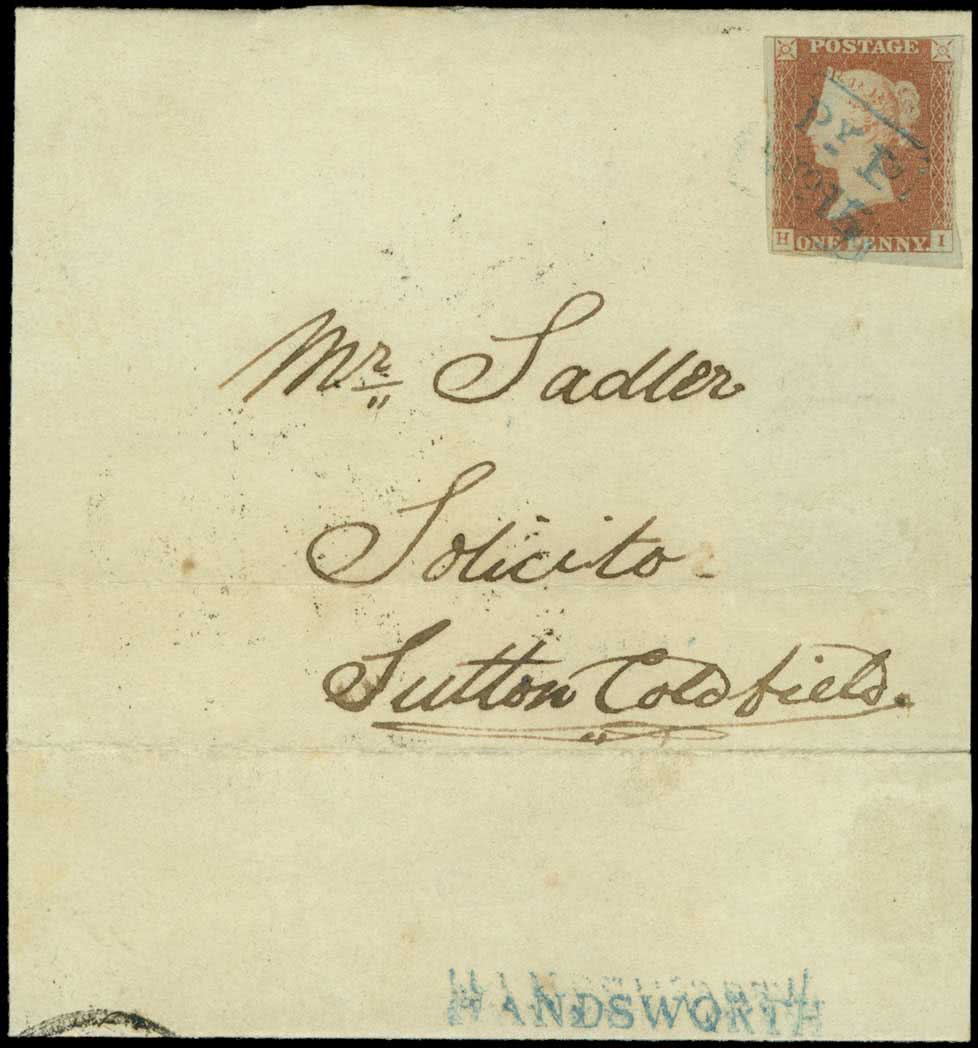 POSTAGE
H ONE PENNY. I
Mr Sadler
Solicitor
Sutton Coldfield.
HANDSWORTH